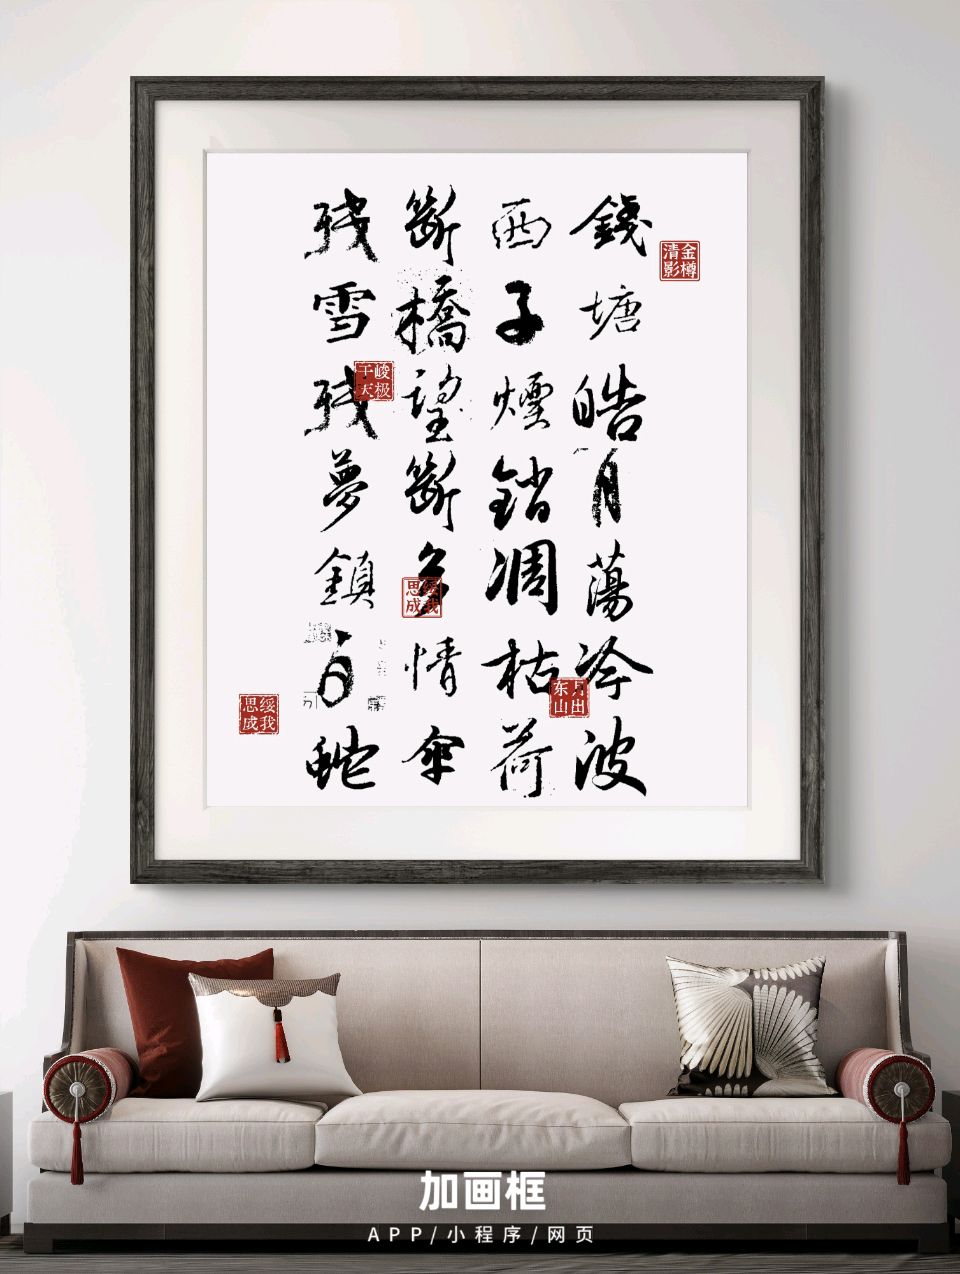 錢塘皓月蕩冷波
西子煙銷凋枯荷
斷橋望斷多情傘
残雪残夢鎮白蛇
金樽清影
峻极于天
绥我思成
月出东山
绥我思成
加画框
APP/小程序/网页